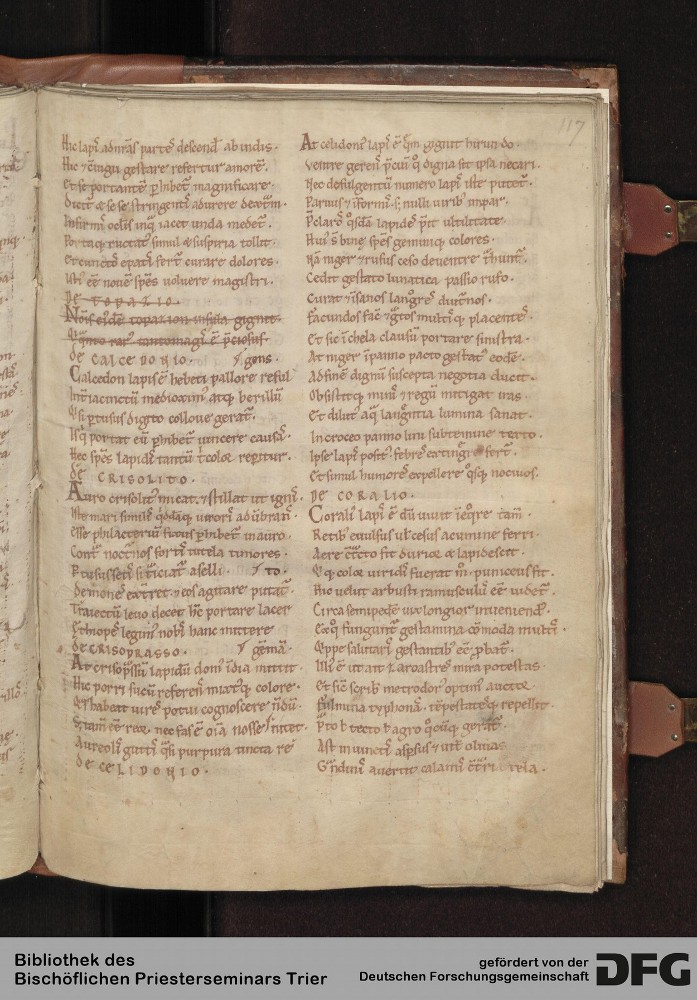 Hic lapiſ adunaſ parteſ deſcend͛ ab indiſ.
Hic ⁊ cingi geſtare refertur amore͞.
Et ſe portante͞ phibet͛ magnificare.
Dicit͛ & ſe ſe ſtringenti adurere
Infirmiſ ocliſ inq͛ iacet unda medet͛.
Portaq͛ ructatuſ ſimul & ſuſpiria tollit.
Et cunctoſ epatiſ fert͛ curare doloreſ.
Uſuſ ee noue͞ ſpeſ uoluere magiſtri.
DE TOPAZIO.
topazion inſula gignit.
p̄cioſuſ.
DE CALCEDONIO. genſ.
Calcedon lapiſ e͞ hebeti pallore reful
Int͛ iacinctu͞ medioximuſ atq͛ berillu͞
Qi ſi ptuſuſ digito collo ue gerat͛.
Iſq͛ portat eu͞ phibet͛ uincere cauſaſ.
Hec ſpeſ lapidiſ tantu͞ colore repitur.
DE CRISOLITO.
Auro criſolituſ micat. ⁊ ſtillat ut igniſ.
Eſſe philacteriu͞ fituſ phibet͛ in auro.
Cont͛ nocturnoſ fortiſ tutela timoreſ.
Ptuſuſ ſetiſ ſi traiciat͛ aſelli. to.
Demoneſ ext͛ret ⁊ eoſ agitare putat͛.
Traiectu͞ leuo decet hc͞ portare lacer
Ethiopeſ legimuſ nobiſ hanc mittere
DE CRISOPRASSO. gemma͞.
At criſopſſu͞ lapidu͞ domuſ india mittit.
Hic porri ſucu͞ referenſ mixtoq͛ colore.
Q͛ habeat uireſ potui cognoſcere n͞du͞.
Etiam ee reor. nec faſ e͞ oi͞a noſſe
Aureoliſ guttiſ qi͞ purpura tincta re
DE CELIDONIO.
117
At celidoniuſ lapiſ e͞ que͞ gignit hirundo.
Uentre gerenſ pcui q͛ digna ſit ipſa necari.
Nec deſulgentu͞ numero lapiſ iſte putet͛.
Paruuſ ⁊ iformiſ. ſ; nulli uirib; impar.
Pclaroſ qſda͞ lapideſ pit utilitate.
Huiuſ ſ bine ſpeſ geminiq; coloreſ.
Na͞ niger ⁊ rufuſ ceſo de uentre t͛hunt͛.
Cedit geſtato lunatica paſſio rufo.
Curat ⁊ iſanoſ langreſ diut͛noſ.
Facunduſ fac͛ & gtoſ multiſq; placenteſ.
Et ſic i chela clauſu͞ portare ſiniſtra.
At niger i panno pacto geſtatuſ eode͞.
Ad fine͞ dignu͞ ſuſcepta negotia ducit.
Obſiſtitq; miniſ ⁊ regu͞ mitigat iraſ.
Et dilutuſ aq͛ langntia lumina ſanat.
In croceo panno lini ſubtemine texto.
Ipſe lapiſ poſituſ febreſ extingre fert͛.
Et ſimul humoreſ expellere qſq; nociuoſ.
DE CORALIO.
Coraliuſ lapiſ e͞ du͞ uiuit i eqre tam͞.
Retib; euulſuſ ul͛ ceſuſ acumine ferri.
Aere fit duruſ & lapideſcit.
Q q; colore uiridiſ fuerat m͞. puniceuſ fit.
Hic uelut arbuſti ramuſculuſ ee͞ uidet͛.
Circa ſemipede͞ uix longior inueniendꝰ.
Ex q͛ funguntuſ geſtamina comoda multiſ.
Qippe ſalutariſ geſtantib; ee͞ pbat͛.
Uiſ e͞ ut ait zaroaſtreſ mira poteſtaſ.
Et ſic ſcribit metrodoruſ optimuſ auctor.
Fulmina typhonaſ te͞peſtateſq; repellit.
P to b tecto b agro q͛cuq; gerat͛.
Aſt in uinetiſ aſpſuſ ⁊ int͛ oliuaſ
G͛ndiniſ auertit calamiſ
Bibliothek des
Bischöflichen Priesterseminars Trier
gefördert von der
Deutschen Forschungsgemeinschaft
DFG